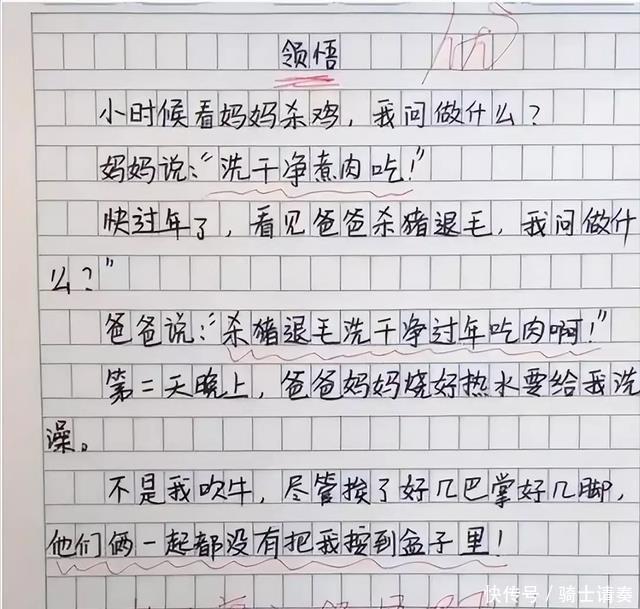 领悟
小时候看妈妈杀鸡，我问做什么？
妈妈说："洗干净煮肉吃！"
快过年了，看见爸爸杀猪退毛，我问做什
么？"
爸爸说："杀猪退毛洗干净过年吃肉啊！"
第二天晚上，爸爸妈妈烧好热水要给我洗
澡。
不是我吹牛，尽管挨了好几巴掌好几脚，
他们俩一起都没有把我按到盆子里！
快传号／骑士请奏